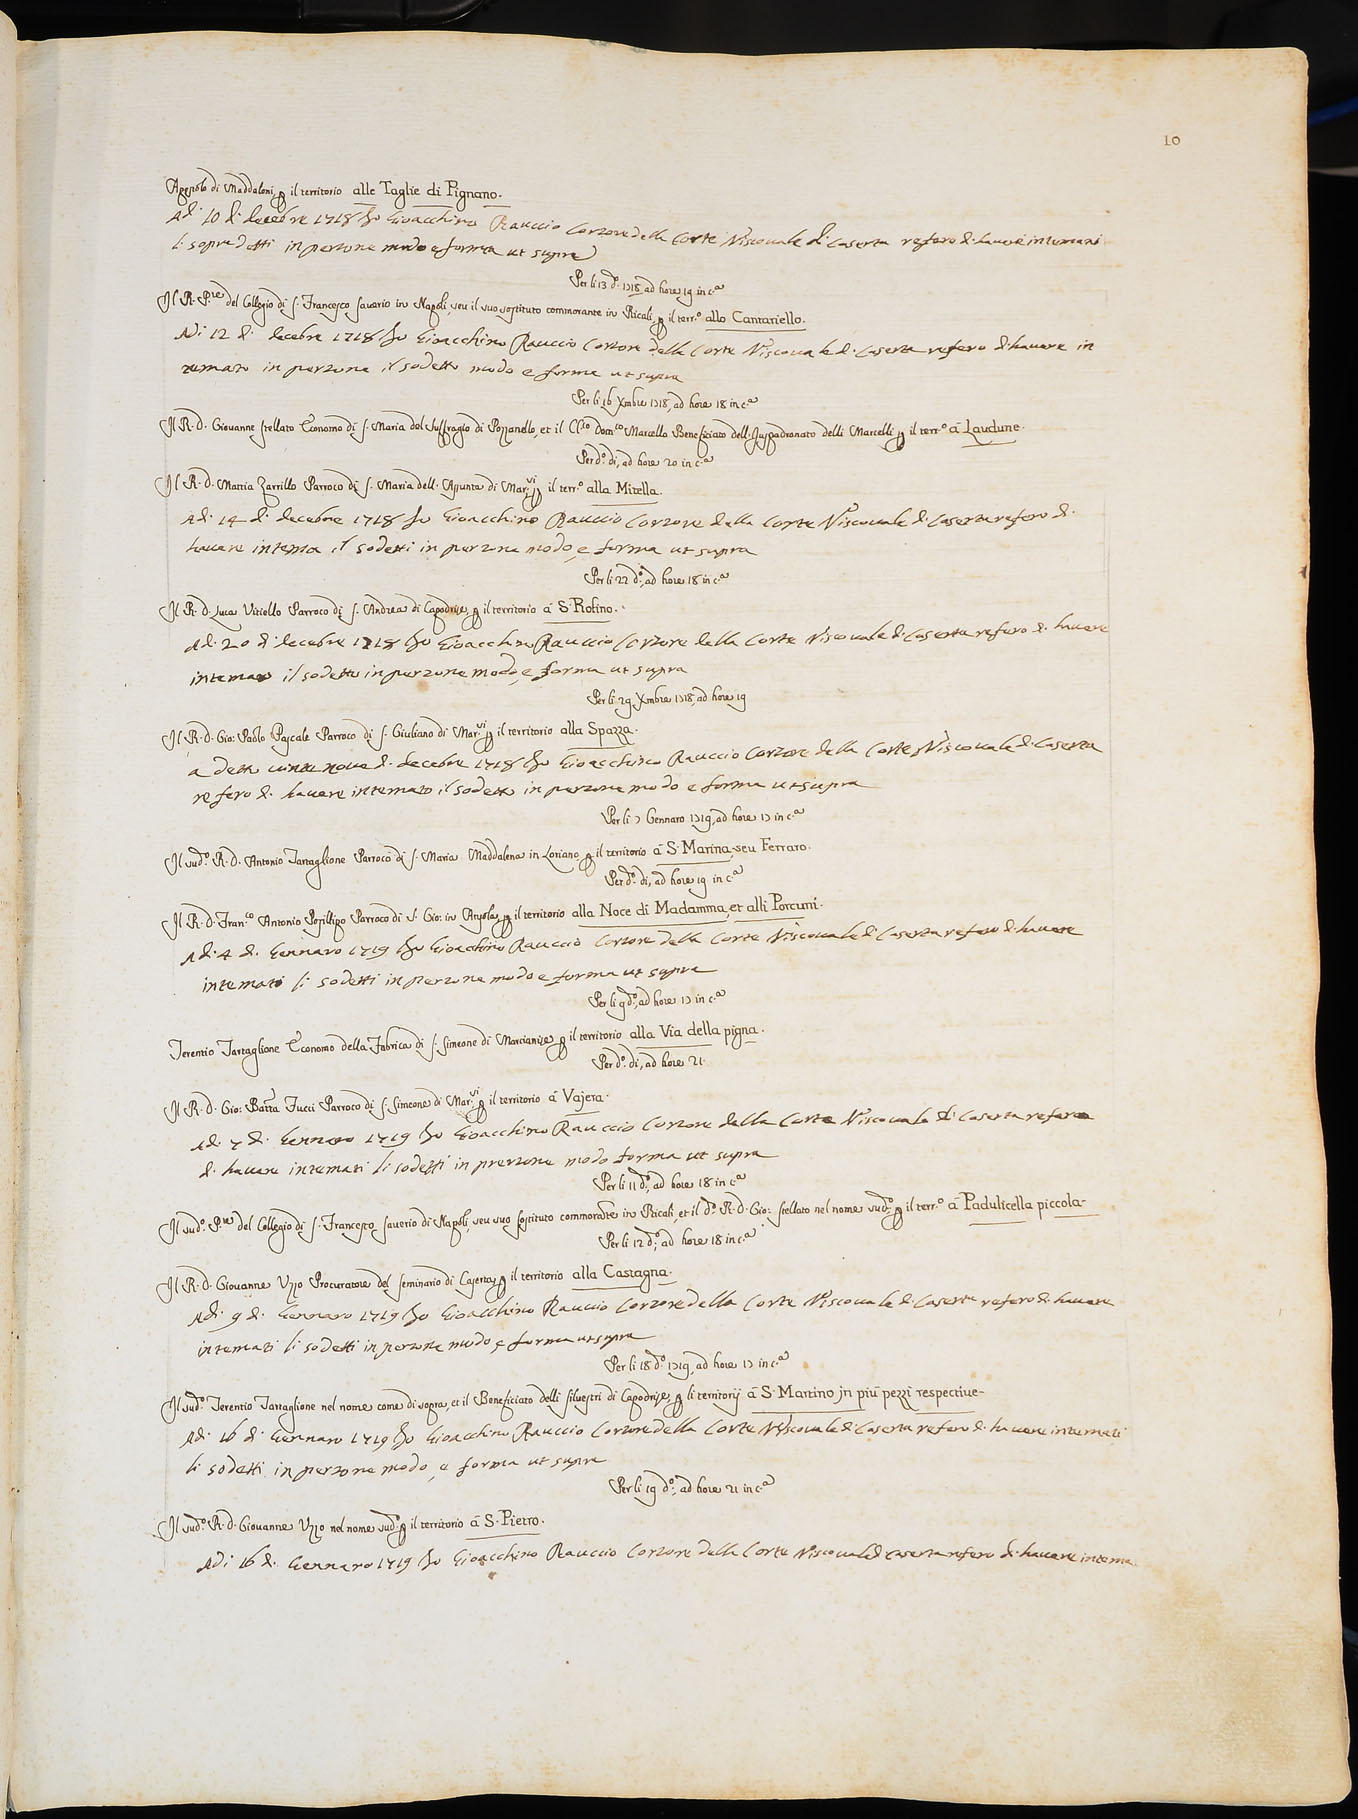 10
Apostolo di Maddaloni, p il territorio alle Taglie di Pignano.
Adi 10 di decebre 1718 Io Gioacchino Rauccio Corsore della Corte Viscouale di Caserta refero di hauere intemati
li sopradetti in persone modo e forma ut supra
Per li 13 d.º 1718, ad hore 19 in c.ª
Il R. P.re del Collegio di S. Francesco Sauerio in Napoli, seu il suo sostituto commorante in Ricali, p il terr.º allo Cantariello.
Adi 12 di decebre 1718 Io Gioacchino Rauccio Corsore della Corte Viscouale di Caserta refero di hauere in
temato in persone il sodetto modo e forma ut supra
Per li 16 Xmbre 1718, ad hore 18 in c.ª
Il R. D. Giouanne Stellato Economo di S. Maria del Suffragio di Pozzanello, et il Cl.co Dom.co Marcello Beneficiato dell' Juspadronato delli Marcelli p il terr.º à Laudune.
Per d.º di, ad hore 20 in c.ª
Il R. D. Mattia Zarrillo Parroco di S. Maria dell' Assunta di Mar.vi p il terr.º alla Mitella.
Adi 14 di decebre 1718 Io Gioacchino Rauccio Corsore della Corte Viscouale di Caserta refero di
hauere intema il sodetti in persone modo, e forma ut supra
Per li 22 d.º, ad hore 18 in c.ª
Il R. D. Luca Vitiello Parroco di S. Andrea di Capodrise, p il territorio à S. Rofino.
Adi 20 di decebre 1718 Io Gioacchino Rauccio Corsore della Corte Viscouale di Caserta refero di hauere
intemato il sodetto in persone modo, e forma ut supra
Per li 29 Xmbre 1718, ad hore 19
Il R. D. Gio: Paolo Pascale Parroco di S. Giuliano di Mar.vi p il territorio alla Spazza.
a detti uinte noue di decebre 1718 Io Gioacchino Rauccio Corsore della Corte Viscouale di Caserta
refero di hauere intemato il sodetto in persone modo e forma ut supra
Per li 7 Gennaro 1719, ad hore 17 in c.ª
Il sud.º R. D. Antonio Tartaglione Parroco di S. Maria Maddalena in Loriano, p il territorio à S. Marina, seu Ferraro.
Per d.º di, ad hore 19 in c.ª
Il R. D. Fran.co Antonio Posillipo Parroco di S. Gio: in Airola, p il territorio alla Noce di Madamma, et alli Porcini.
Adi 4 di Gennaro 1719 Io Gioacchino Rauccio Corsore della Corte Viscouale di Caserta refero di hauere
intemati li sodetti in persone modo e forma ut supra
Per li 9 d.º, ad hore 17 in c.ª
Terentio Tartaglione Economo della Fabrica di S. Simeone di Marcianise p il territorio alla Via della pigna.
Per d.º di, ad hore 21.
Il R. D. Gio: Batta Tucci Parroco di S. Simeone di Mar.vi p il territorio à Vajera.
Adi 7 di Gennaro 1719 Io Gioacchino Rauccio Corsore della Corte Viscouale di Caserta refero
di hauere intemati li sodetti in presone modo forma ut supra
Per li 11 d.º, ad hore 18 in c.ª
Il sud.º P.re del Collegio di S. Francesco Sauerio di Napoli, seu suo sostituto commorante in Ricali, et il d.º R. D. Gio: Stellato nel nome sud.º p il terr.º à Padulicella piccola.
Per li 12 d.º, ad hore 18 in c.ª
Il R. D. Giouanne Uzzo Procuratore del Seminario di Caserta, p il territorio alla Castagna.
Adi 9 di Gennaro 1719 Io Gioacchino Rauccio Corsore della Corte Viscouale di Caserta refero di hauere
intemati li sodetti in persone modo, e forma ut supra
Per li 18 d.º 1719, ad hore 17 in c.ª
Il sud.º Terentio Tartaglione nel nome come di sopra, et il Beneficiato delli Siluestri di Capodrise, p li territorij à S. Martino jn più pezzi respectiue.
Adi 16 di Gennaro 1719 Io Gioacchino Rauccio Corsore della Corte Viscouale di Caserta refero di hauere intemati
li sodetti in persone modo, e forma ut supra
Per li 19 d.º, ad hore 21 in c.ª
Il sud.º R. D. Giouanne Uzzo nel nome sud.º p il territorio à S. Pietro.
Adi 16 di Gennaro 1719 Io Gioacchino Rauccio Corsore della Corte Viscouale di Caserta refero di hauere intema